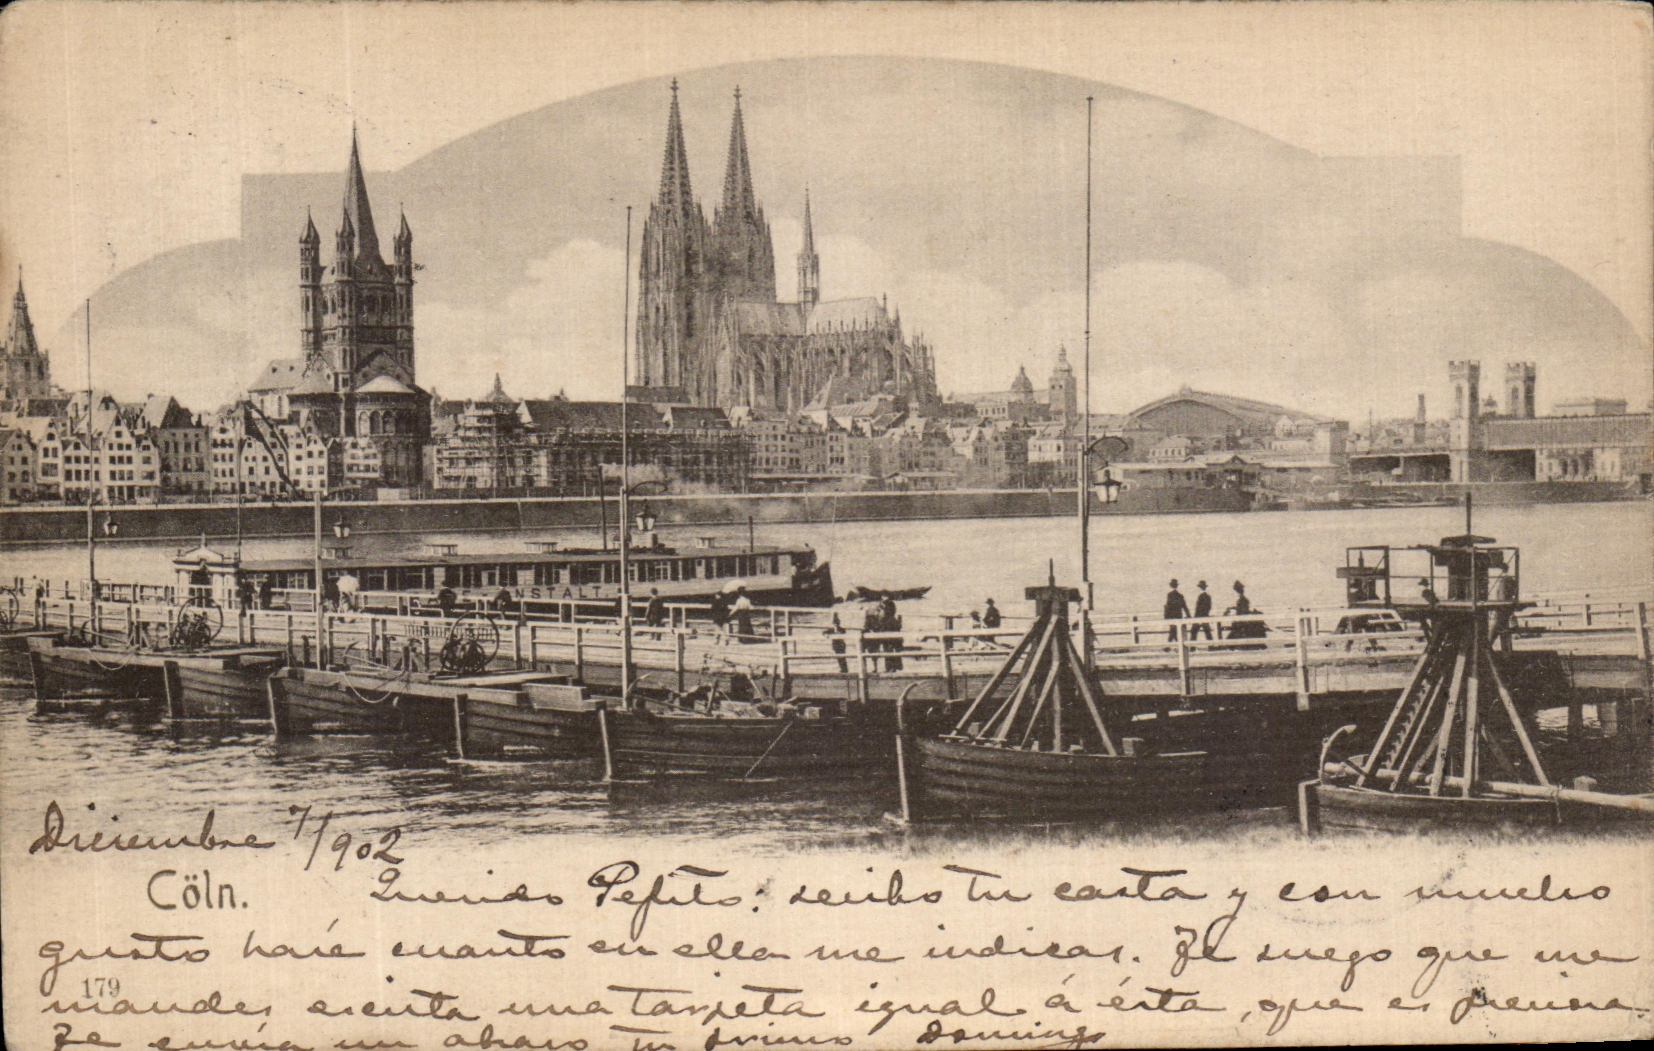 NSTALT
Diciembre 7/902
Cöln.
Querido Pepito: recibo tu carta y con mucho
gusto haré cuanto en ella me indicas. Te ruego que me
179
mandes escrita una tarjeta igual á ésta, que es preciosa.
Te envía un abrazo tu primo Domingo